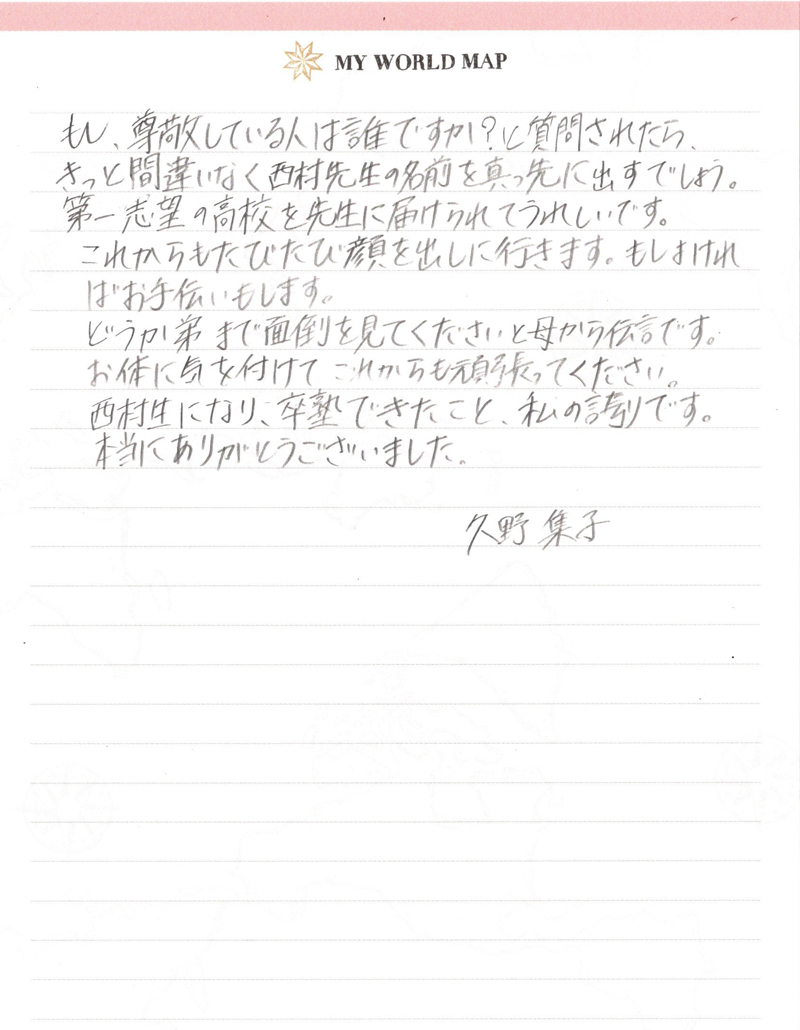 MY WORLD MAP
もし、尊敬している人は誰ですか?と質問されたら、
きっと間違いなく西村先生の名前を真っ先に出すでしょう。
第一志望の高校を先生に届けられてうれしいです。
これからもたびたび顔を出しに行きます。もしよければ
ばお手伝いもします。
どうか弟まで面倒を見てくださいと母から伝言です。
お体に気を付けてこれからも頑張ってください。
西村生になり、卒塾できたこと、私の誇りです。
本当にありがとうございました。
久野 集子